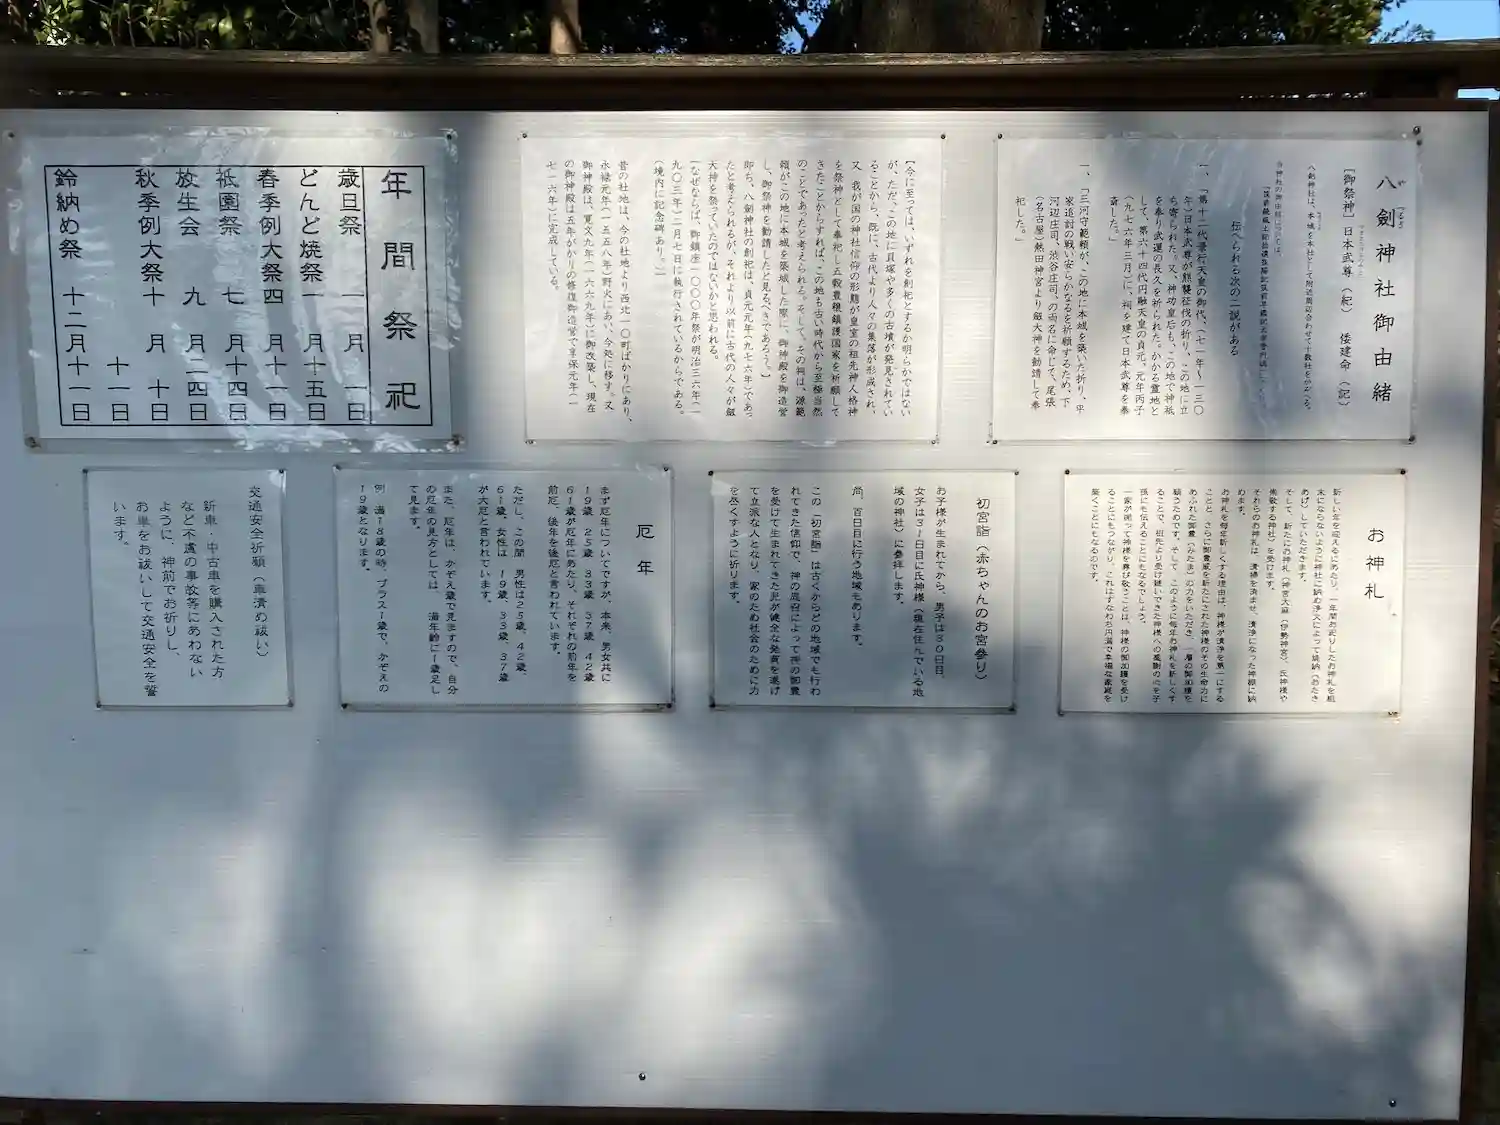 八劔神社御由緒
[御祭神] 日本武尊(紀) 倭建命(記)
八劔神社は、本城を本社として附近周辺合わせて十数社をかぞへる。
当神社の御由緒については、
伝へられる次の二説がある
一、「第十二代景行天皇の御代、(七一年~一三〇
年)日本武尊が熊襲征伐の折り、この地に立
ち寄られた。又、神功皇后も、この地で神祇
を奉り武運の長久を祈られた。かかる霊地と
して、第六十四代円融天皇の貞元、元年丙子
(九七六年三月)に、祠を建て日本武尊を奉
斎した。」
一、「三河守範頼が、この地に本城を築いた折り、平
家追討の戦い安らかなるを祈願するため、下
河辺庄司、渋谷庄司、の両名に命じて、尾張
(名古屋)熱田神宮より劔大神を勧請して奉
祀した。」
【今に至っては、いずれを創祀とするか明らかではない
が、ただ、この地に貝塚や多くの古墳が発見されてい
ることから、既に、古代より人々の集落が形成され、
又、我が国の神社信仰の形態が皇室の祖先神人格神
を祭神として奉祀し五穀豊穣鎮護国家を祈願して
きたことからすれば、この地も古い時代から至極当然
のことであったと考えられる。そして、その祠は、源範
頼がこの地に本城を築城した際に、御神殿を御造営
し、御祭神を勧請したと見るべきであろう。】
即ち、八劔神社の創祀は、貞元元年(九七六年)であっ
たと考えられるが、それより以前に古代の人々が劔
大神を祭っていたのではないかと思われる。
[なぜならば、御鎮座一〇〇〇年祭が明治三六年(一
九〇三年)三月七日に執行されているからである。
(境内に記念碑あり。)]
昔の社地は、今の社地より西北一〇町ばかりにあり、
永禄元年(一五五八年)野火にあい、今処に移す。又、
御神殿は、寛文九年(一六六九年)に御改築し、現在
の御神殿は五年がかりの修復御造営で享保元年(一
七一六年)に完成している。
年間祭祀
歳旦祭 一月 一日
どんど焼祭 一月十五日
春季例大祭 四月十一日
祇園祭 七月十四日
放生会 九月二四日
秋季例大祭 十月 十日
十一日
鈴納め祭 十二月十一日
お神札
新しい年を迎えるにあたり、一年間お祀りしたお神札を粗
末にならないように神社に納め浄火によって焼納(おたき
あげ)していただきます。
そして、新たにお神札(神宮大麻(伊勢神宮)、氏神様や
崇敬する神社)を受けます。
それらのお神札は、清掃を済ませ、清浄になった神棚に納
めます。
お神札を毎年新しくする理由は、神様が清浄を第一にする
ことと、さらに御霊威を新たにされた神様のその生命力に
あふれた御霊(みたま)の力をいただき、一層の御加護を
願うためです。そして、このように毎年お神札を新しくす
ることで、祖先より受け継いできた神様への感謝の心を子
孫にも伝えることにもなるでしょう。
一家が揃って神様を尊び敬うことは、神様の御加護を受け
ることにもつながり、これはすなわち円満で幸福な家庭を
築くことにもなるのです。
初宮詣(赤ちゃんのお宮参り)
お子様が生まれてから、男子は30日目、
女子は31日目に氏神様(現在住んでいる地
域の神社)に参拝します。
尚、百日目に行う地域もあります。
この「初宮詣」は古くからどの地域でも行わ
れてきた信仰で、神の恩召によって神の御霊
を受けて生まれてきた児が健全な発育を遂げ
て立派な人となり、家のため社会のために力
を尽くすように祈ります。
厄年
まず厄年についてですが、本来、男女共に
19歳、25歳、33歳、37歳、42歳、
61歳が厄年にあたり、それぞれの前年を
前厄、後年を後厄と言われています。
ただし、この間、男性は25歳、42歳、
61歳、女性は、19歳、33歳、37歳
が大厄と言われています。
また、厄年は、かぞえ歳で見ますので、自分
の厄年の見方としては、満年齢に1歳足し
て見ます。
例 満18歳の時、プラス1歳で、かぞえの
19歳となります。
交通安全祈願(車清め祓い)
新車・中古車を購入された方
など不慮の事故等にあわない
ように、神前でお祈りし、
お車をお祓いして交通安全を誓
います。